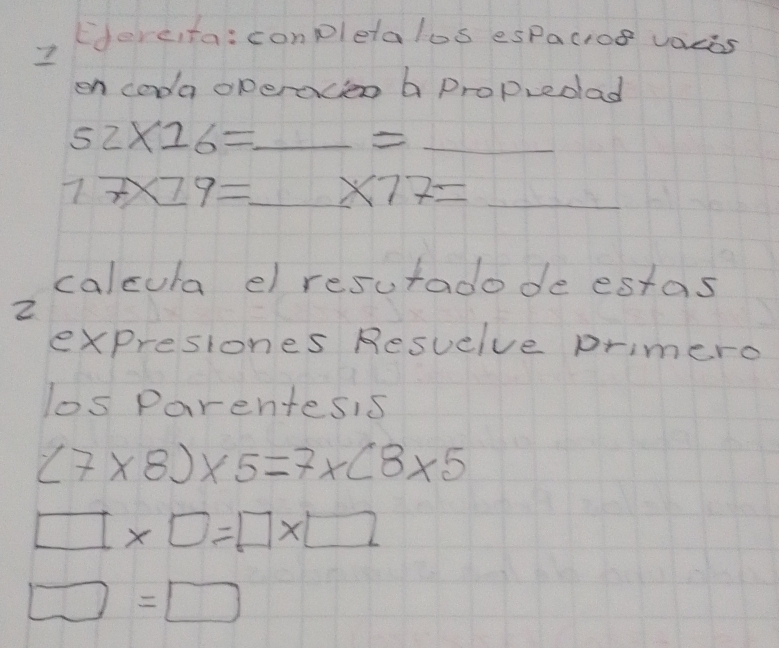 1 Ejercita: conpleta los espacios vacios
en cada operacion h propiedad
52x16=____ = ____
17x19=____x17= ____
2 calcula el resutado de estas
expresiones Resuelve primero
los Parentesis
(7x8)x5=7x(8x5
□ x □ = □ x □
□ = □